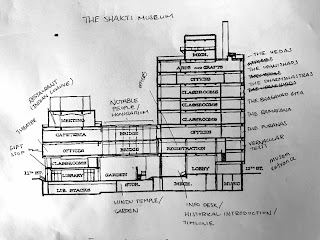 THE SHAKTI MUSEUM
RESTAURANT
THEATER
GIFT
SHOP
NOTABLE
PEOPLE /
OFFICES
MECH.
ARTS AND CRAFTS
OFFICES
CLASSROOMS
CLASSROOMS
CLASSROOMS
OFFICES
REGISTRATION
LOBBY
MECH.
MEETING
CAFETERIA
OFFICES
CLASSROOMS
LIBRARY
LIB. STACKS
BRIDGE
BRIDGE
GARDEN
STOR.
11TH ST.
12TH ST.
THE VEDAS
THE UPANISHADS
THE DHARMASHASTRAS
THE BHAGAVAD GITA
THE RAMAYANA
THE PURANAS
VERNACULAR
TEXTS
MUSEUM
ENTRANCE
HINDU TEMPLE /
GARDEN
INFO DESK /
HISTORICAL INTRODUCTION /
TIMELINE